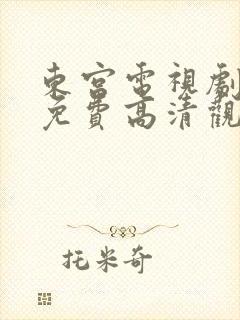 東宮電視劇
免費高清觀
托米奇